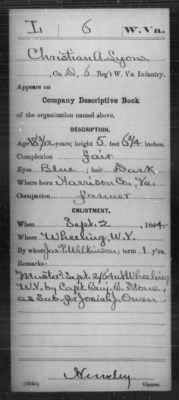 L 6 W. Va.
Christian A. Lyons
Co. D, 6 Reg't W. Va. Infantry.
Appears on
Company Descriptive Book
of the organization named above.
DESCRIPTION.
Age years; height 5 feet 6 3/4 inches.
Complexion fair
Eyes Blue; hair Dark
Where born Harrison Co., Va.
Occupation farmer
ENLISTMENT.
When Sept. 2, 1864.
Where Wheeling, W.V.
By whom Jas. P. Wilkinson; term 1 y'rs.
Remarks:
Muster Sept. 2/64 at Wheeling
W.V. by Capt. Benj. B. Stone,
as Sub. for Josiah J. Owen
Copyist.